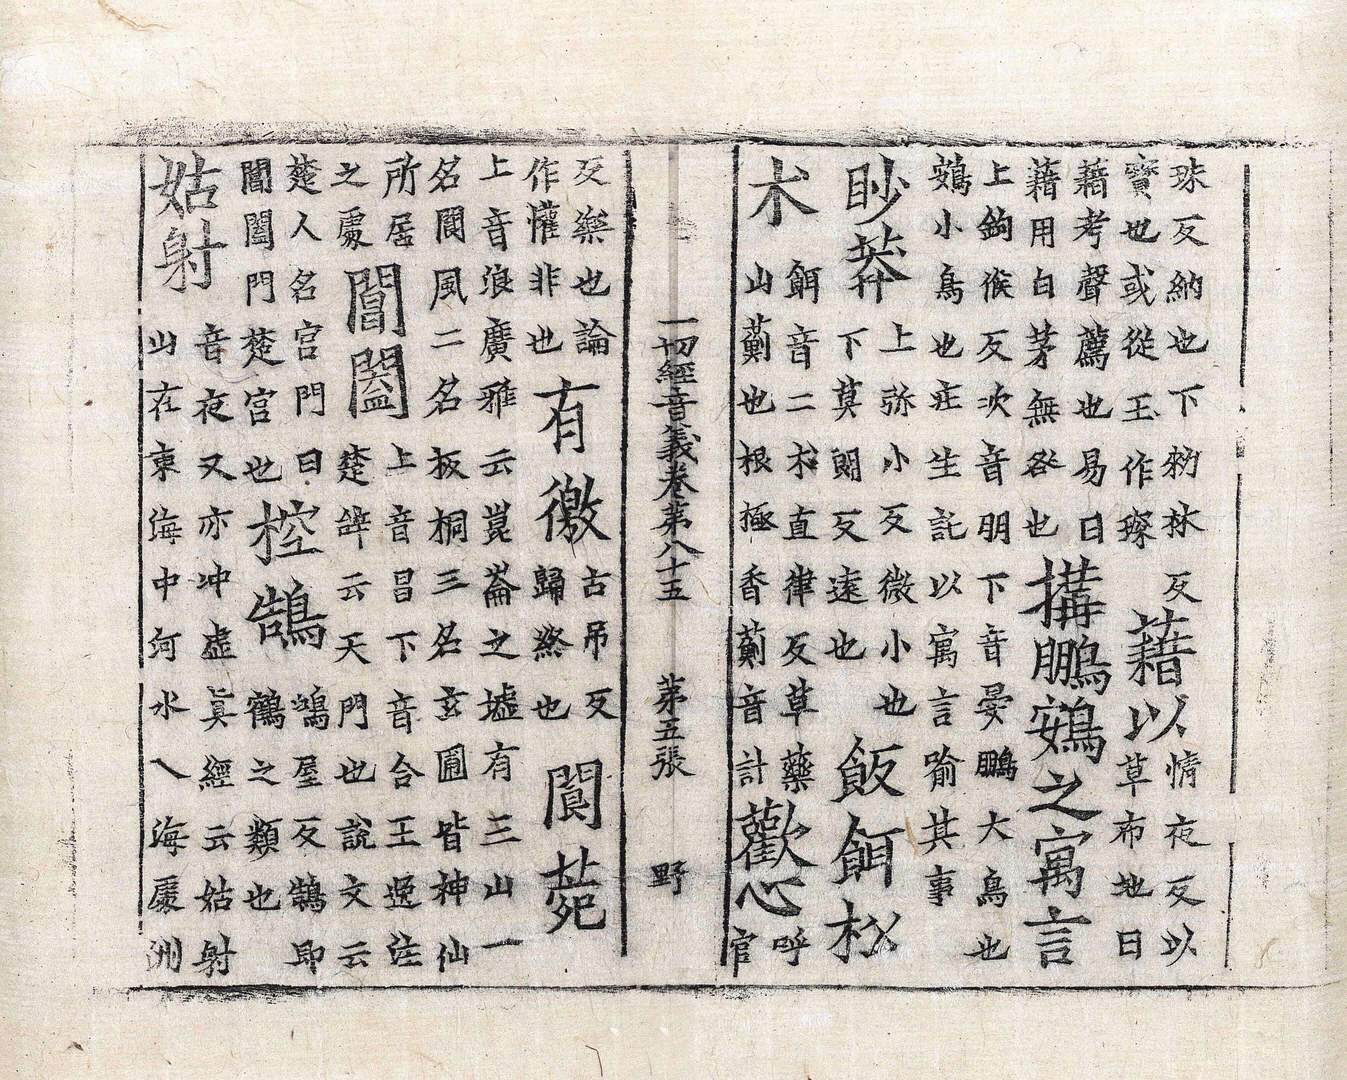 珠反納也下勑林反
寶也或從玉作琛
藉以
情夜反以
草布地曰
藉考聲薦也易曰
藉用白茅無咎也
搆鵬鷃之寓言
上鉤候反次音朋下音晏鵬大鳥也
鷃小鳥也莊生託以寓言喻其事
眇莽
上弥小反微小也
下莫朗反遠也
飯餌松
朮
餌音二朮直律反草藥
山薊也根極香薊音計
歡心
呼
官
一切經音義卷第八十五 第五張 野
反樂也論
作懽非也
有徼
古吊反
歸終也
閬苑
上音浪廣雅云崑崙之墟有三山一
名閬風二名板桐三名玄圃皆神仙
所居
之處
閶闔
上音昌下音合王逸注
楚辞云天門也說文云
楚人名宮門曰
閶闔門楚宮也
控鵠
鴻屋反鵠即
鶴之類也
姑射
音夜又亦冲虛眞經云姑射
山在東海中河水入海處洲